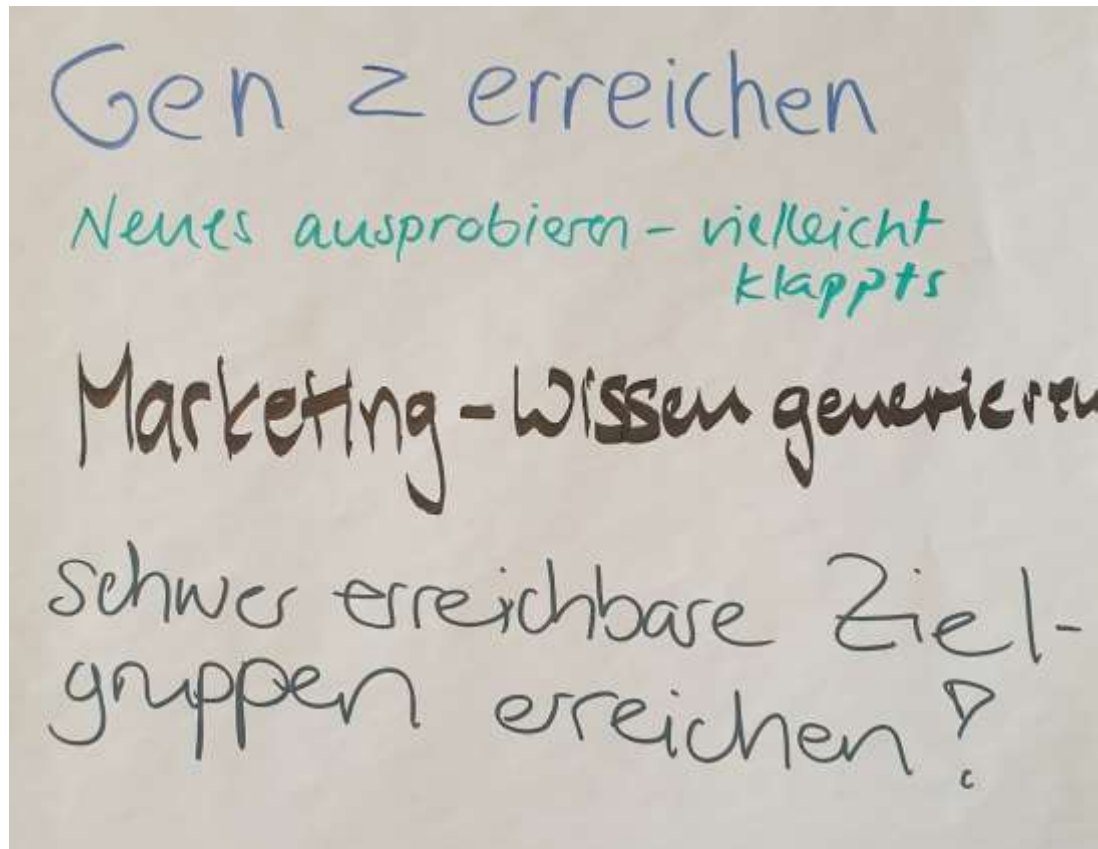 Gen Z erreichen
Neues ausprobieren – vielleicht
klappts
Marketing - Wissen generieren
schwer erreichbare Ziel-
gruppen erreichen?